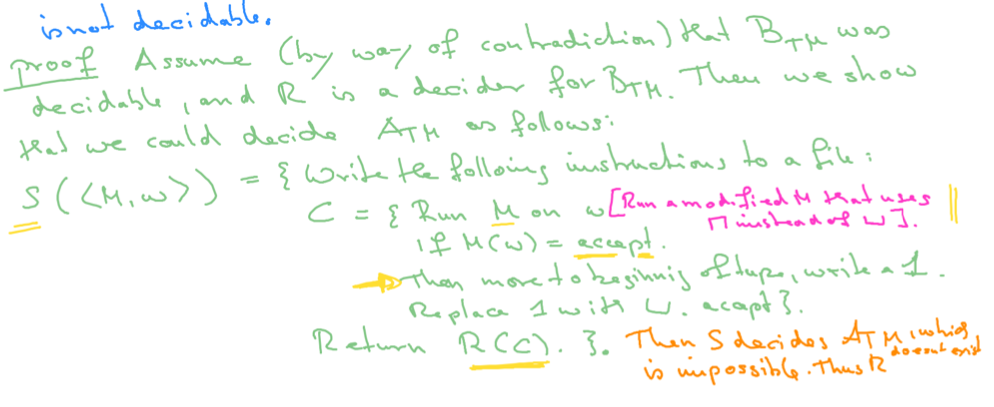 is not decidable.
proof Assume (by way of contradiction) that B_TM was
decidable, and R is a decider for B_TM. Then we show
that we could decide A_TM as follows:
S(<M,w>) = { Write the following instructions to a file:
C = { Run M on w [Run a modified M that uses
⊓ instead of ⊔].
if M(w) = accept.
Then move to beginnig of tape, write a 1.
Replace 1 with ⊔. accept}.
Return R(C). }. Then S decides A_TM, which
is impossible. Thus R doesnt exist